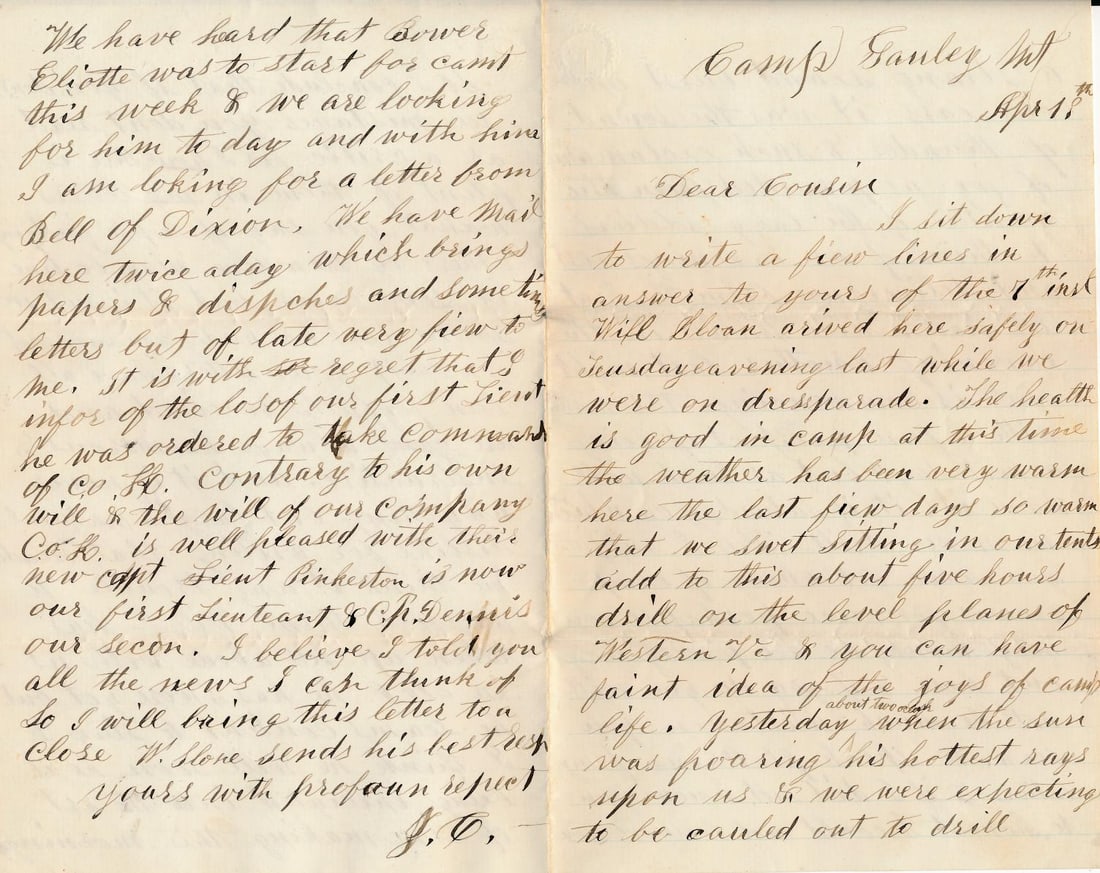 Camp Gauley Mt
Apr 18th
Dear Cousin
I sit down
to write a fiew lines in
answer to yours of the 7th inst
Will Sloan arived here safely on
Teusdayeavening last while we
were on dressparade. The health
is good in camp at this time
the weather has been very warm
here the last fiew days so warm
that we swet sitting in our tents
add to this about five hours
drill on the level planes of
Western Va & you can have
faint idea of the joys of camp
life. Yesterday about two oclok when the sun
was poaring his hottest rays
upon us & we were expecting
to be cauled out to drill
We have heard that Bower
Eliotte was to start for camt
this week & we are looking
for him to day and with him
I am loking for a letter from
Bell of Dixion. We have Mail
here twice aday which brings
papers & dispches and sometimes
letters but of late very fiew to
me. It is with regret that I
infor of the losof our first Lieut
he was ordered to take command
of Co. K. contrary to his own
will & the will of our company
Co. K. is well pleased with their
new capt Lieut Pinkerton is now
our first Lieuteant & C.R. Dennis
our secon. I believe I told you
all the news I can think of
So I will bring this letter to a
close W. Slone sends his best resp
yours with profoun repect
J. C.